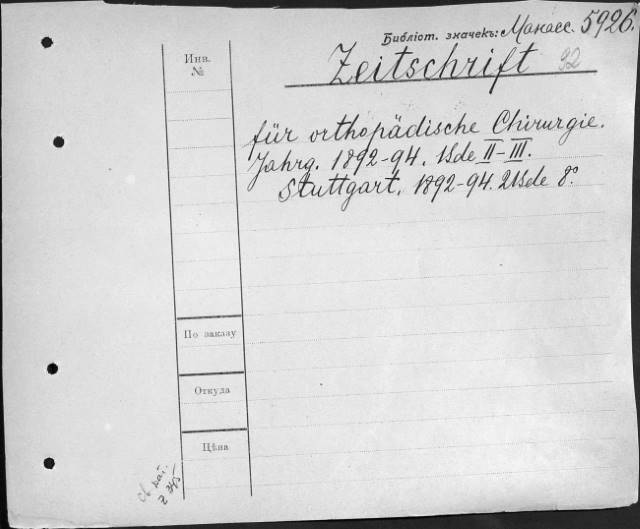 Библіот. значекъ: Манасс. 5926.
Zeitschrift 92
für orthopädische Chirurgie.
Jahrg. 1892-94. Bde II-III.
Stuttgart. 1892-94. 2 Bde 8°.
Инв.
№
По заказу
Откуда
Цѣна